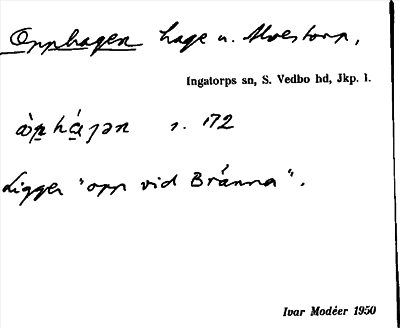 Opphagen hage u. Alvestorp,
Ingatorps sn, S. Vedbo hd, Jkp. l.
s. 172
Ligger "opp vid Bránna".
Ivar Modéer 1950